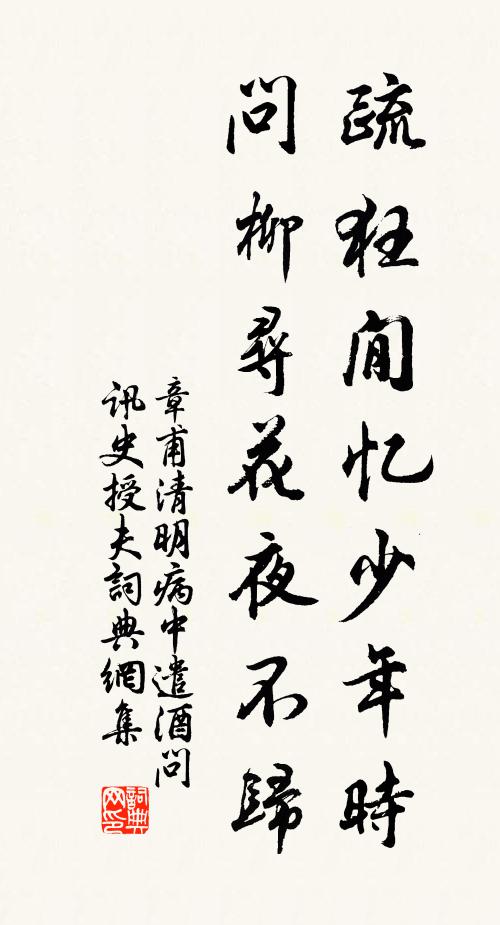 疏狂閒忆少年時
問柳尋花夜不歸
章甫清明病中遣酒問
訊史授夫詞典網集
詞典
网印